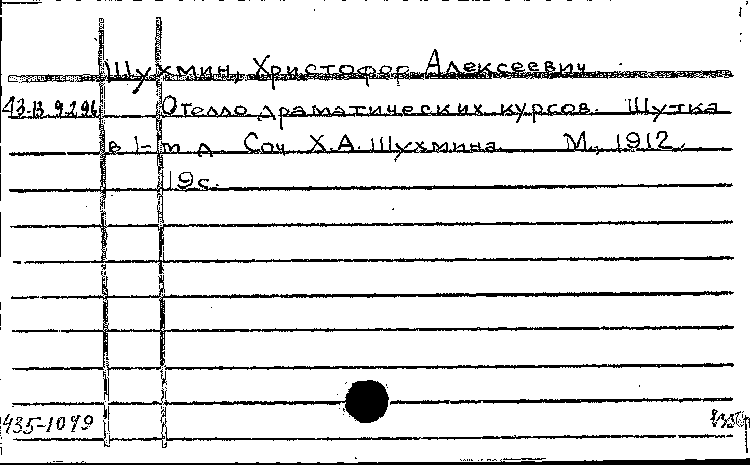 Шухмин, Христофор Алексеевич
43-13 9.2.96 Отелло драматических курсов. Шутка
в 1-м д. Соч. Х.А. Шухмина. М., 1912.
19с.
435-1079